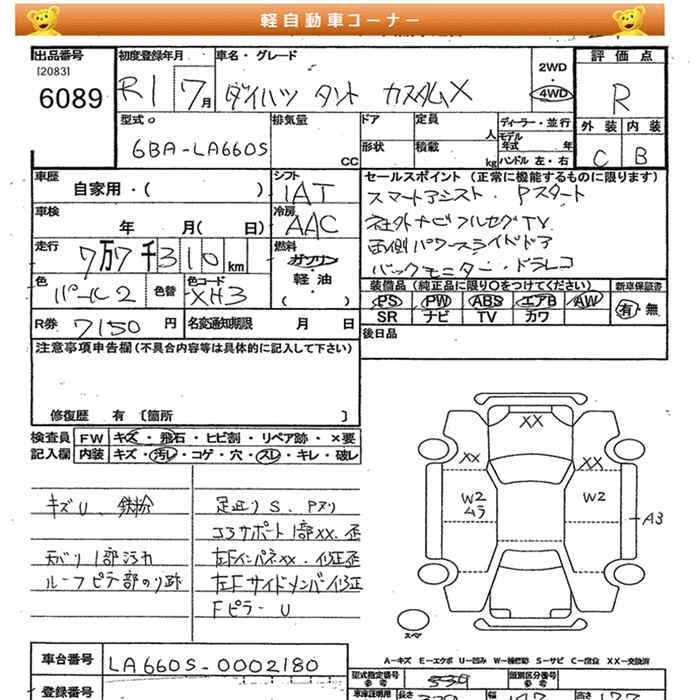 軽自動車コーナー
出品番号
[2083]
6089
初度登録年月
R1 7月
車名・グレード
ダイハツ タント カスタムX
2WD
・
4WD
評価点
R
外装 内装
C B
型式
6BA-LA660S
排気量
CC
ドア
形状
定員
人
積載
kg
ディーラー・並行
モデル
年式 年
ハンドル 左・右
車歴
自家用・( )
シフト
IAT
車検
年 月( 日)
冷房
AAC
走行
7万7千310km
燃料
ガソリン
軽油
( ・ )
色
パール2
色替
色コード
XH3
セールスポイント (正常に機能するものに限ります)
スマートアシスト. Pスタート
社外ナビフルセグTV
両側パワースライドドア
バックモニター・ドラレコ
装備品(純正品に限り〇をつけてください)
PS PW ABS エアB AW
SR ナビ TV カワ
新車保証書
有・無
R券 7150円
名変通知期限 月 日
後日品
注意事項申告欄(不具合内容等は具体的に記入して下さい)
修復歴 有 〔箇所 〕
検査員
記入欄
FW キズ・飛石・ヒビ割・リペア跡・×要
内装 キズ・汚レ・コゲ・穴・スレ・キレ・破レ
キズU、鉄粉
天バリ1部汚れ
ルーフピラー部のり跡
足廻りS、Pヌリ
コアサポート1部XX.歪
左Fインパネxx.修正歪
左Fサイドメンバー修正
FピラーU
XX
XX
XX
W2
ムラ
W2
A3
スペア
A-キズ E-エクボ U-凹み W-補修跡 S-サビ C-腐食 XX-交換済
車台番号
LA660S-0002180
登録番号
型式指定番号
参考
539
類別区分番号
参考
車庫証明用
長さ
幅
高さ